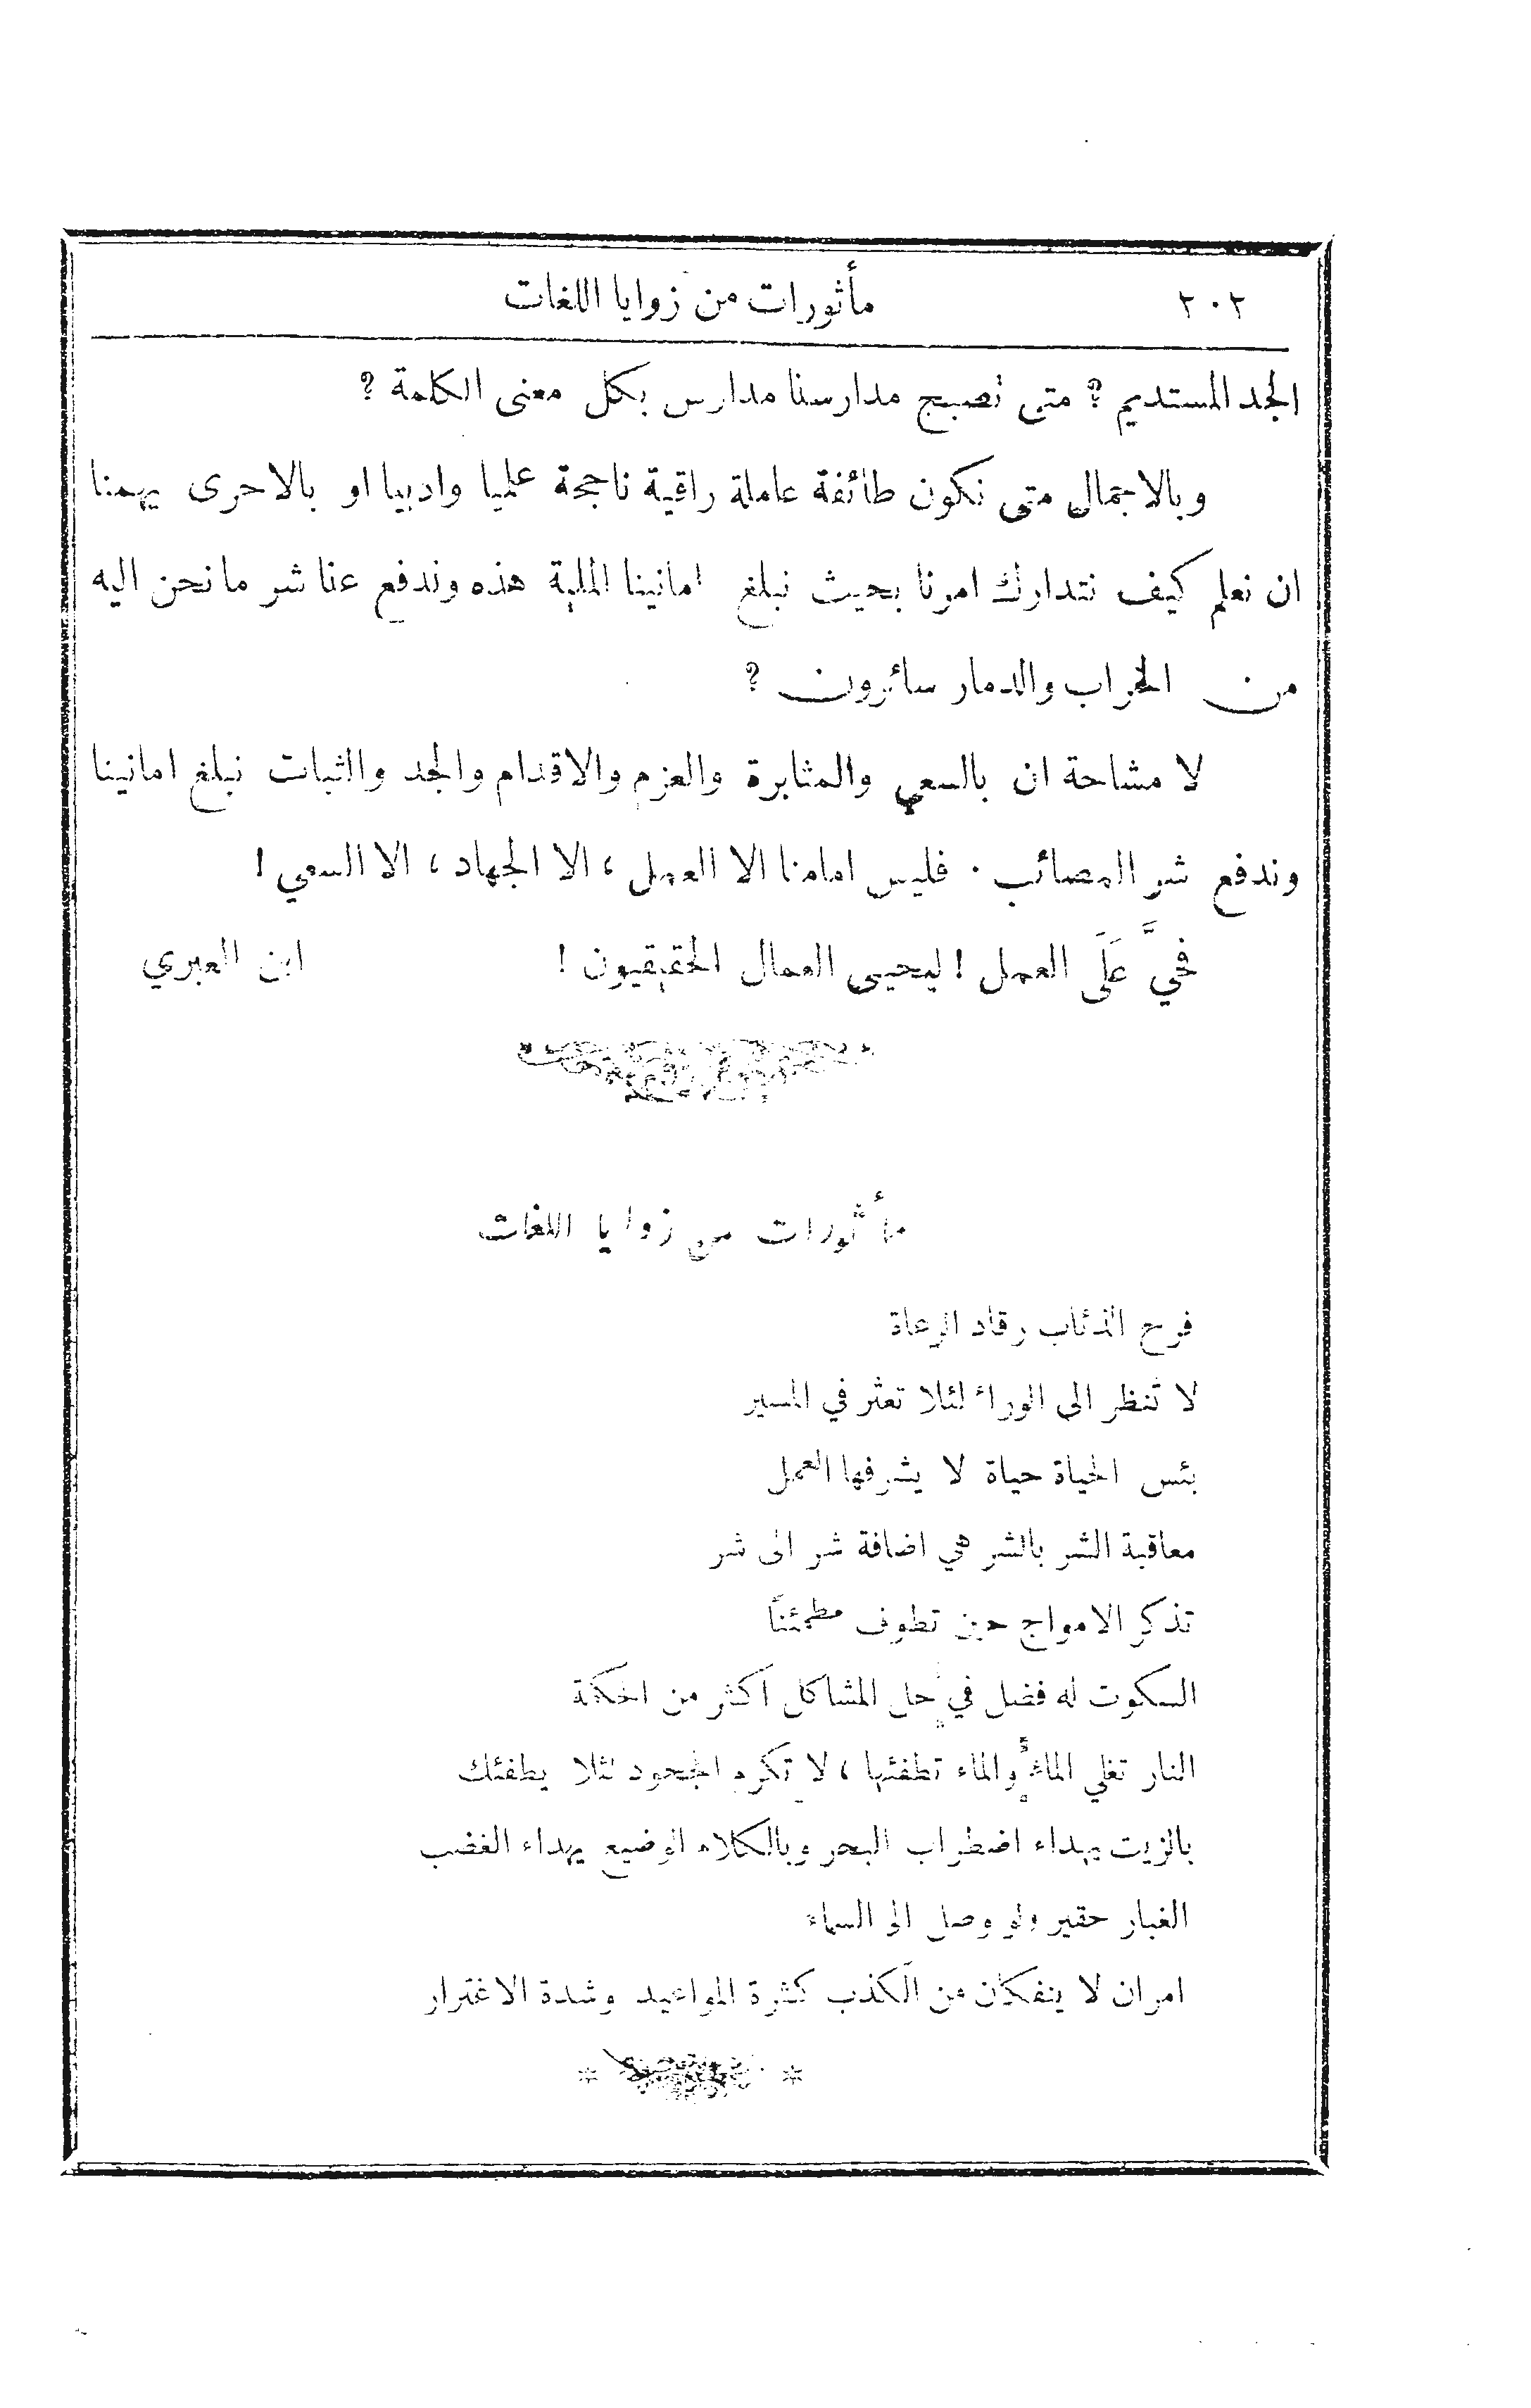 ٢٠٢ مأثورات من زوايا اللغات
الجد المستديم ؟ متى نصبح مدارسنا مدارس بكل معنى الكلمة ؟
وبالاجمال متى نكون طائفة عاملة راقية ناجحة علميا وادبيا او بالاحرى يهمنا
ان نعلم كيف نتدارك امرنا بحيث نبلغ امانينا الملية هذه وندفع عنا شر ما نحن اليه
من الخراب والدمار سائرون ؟
لا مشاحة ان بالسعي والمثابرة والعزم والاقدام والجد والثبات نبلغ امانينا
وندفع شر المصائب ٠ فليس امامنا الا العمل ، الا الجهاد ، الا السعي !
فحيَّ عَلَى العمل ! ليحيى العمال الحقيقيون ! ابن العبري
مأثورات من زوايا اللغات
فرح الذئاب رقاد الرعاة
لا تنظر الى الوراء لئلا تعثر في المسير
بئس الحياة حياة لا يشرفها العمل
معاقبة الشر بالشر هي اضافة شر الى شر
تذكر الامواج حين تطوف مطمئنًا
السكوت له فضل في حل المشاكل اكثر من الحكمة
النار تغلي الماء والماء تطفئها ، لا تكرم الجحود لئلا يطفئك
بالزيت يهداء اضطراب البحر وبالكلام الوضيع يهداء الغضب
الغبار حقير ولو وصل الى السماء
امران لا ينفكان من الكذب كثرة المواعيد وشدة الاغترار